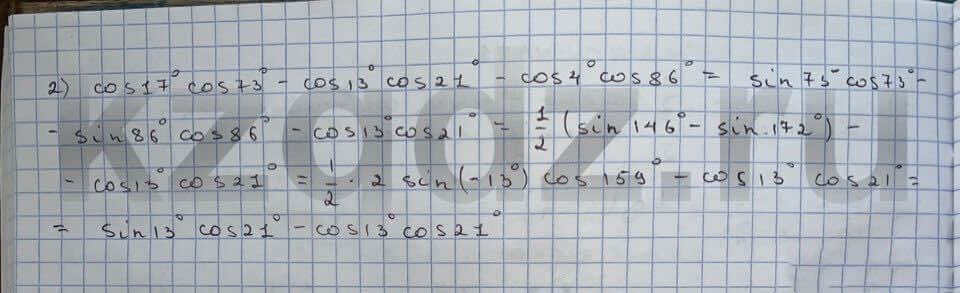 2) cos17° cos73° - cos13° cos21° - cos4° cos86° = sin73° cos73° -
- sin86° cos86° - cos13° cos21° = 1/2 (sin146° - sin.172°) -
- cos13° cos21° = 1/2 · 2 sin(-13°) cos159° - cos13° cos21° =
= sin13° cos21° - cos13° cos21°
kzgdz.ru